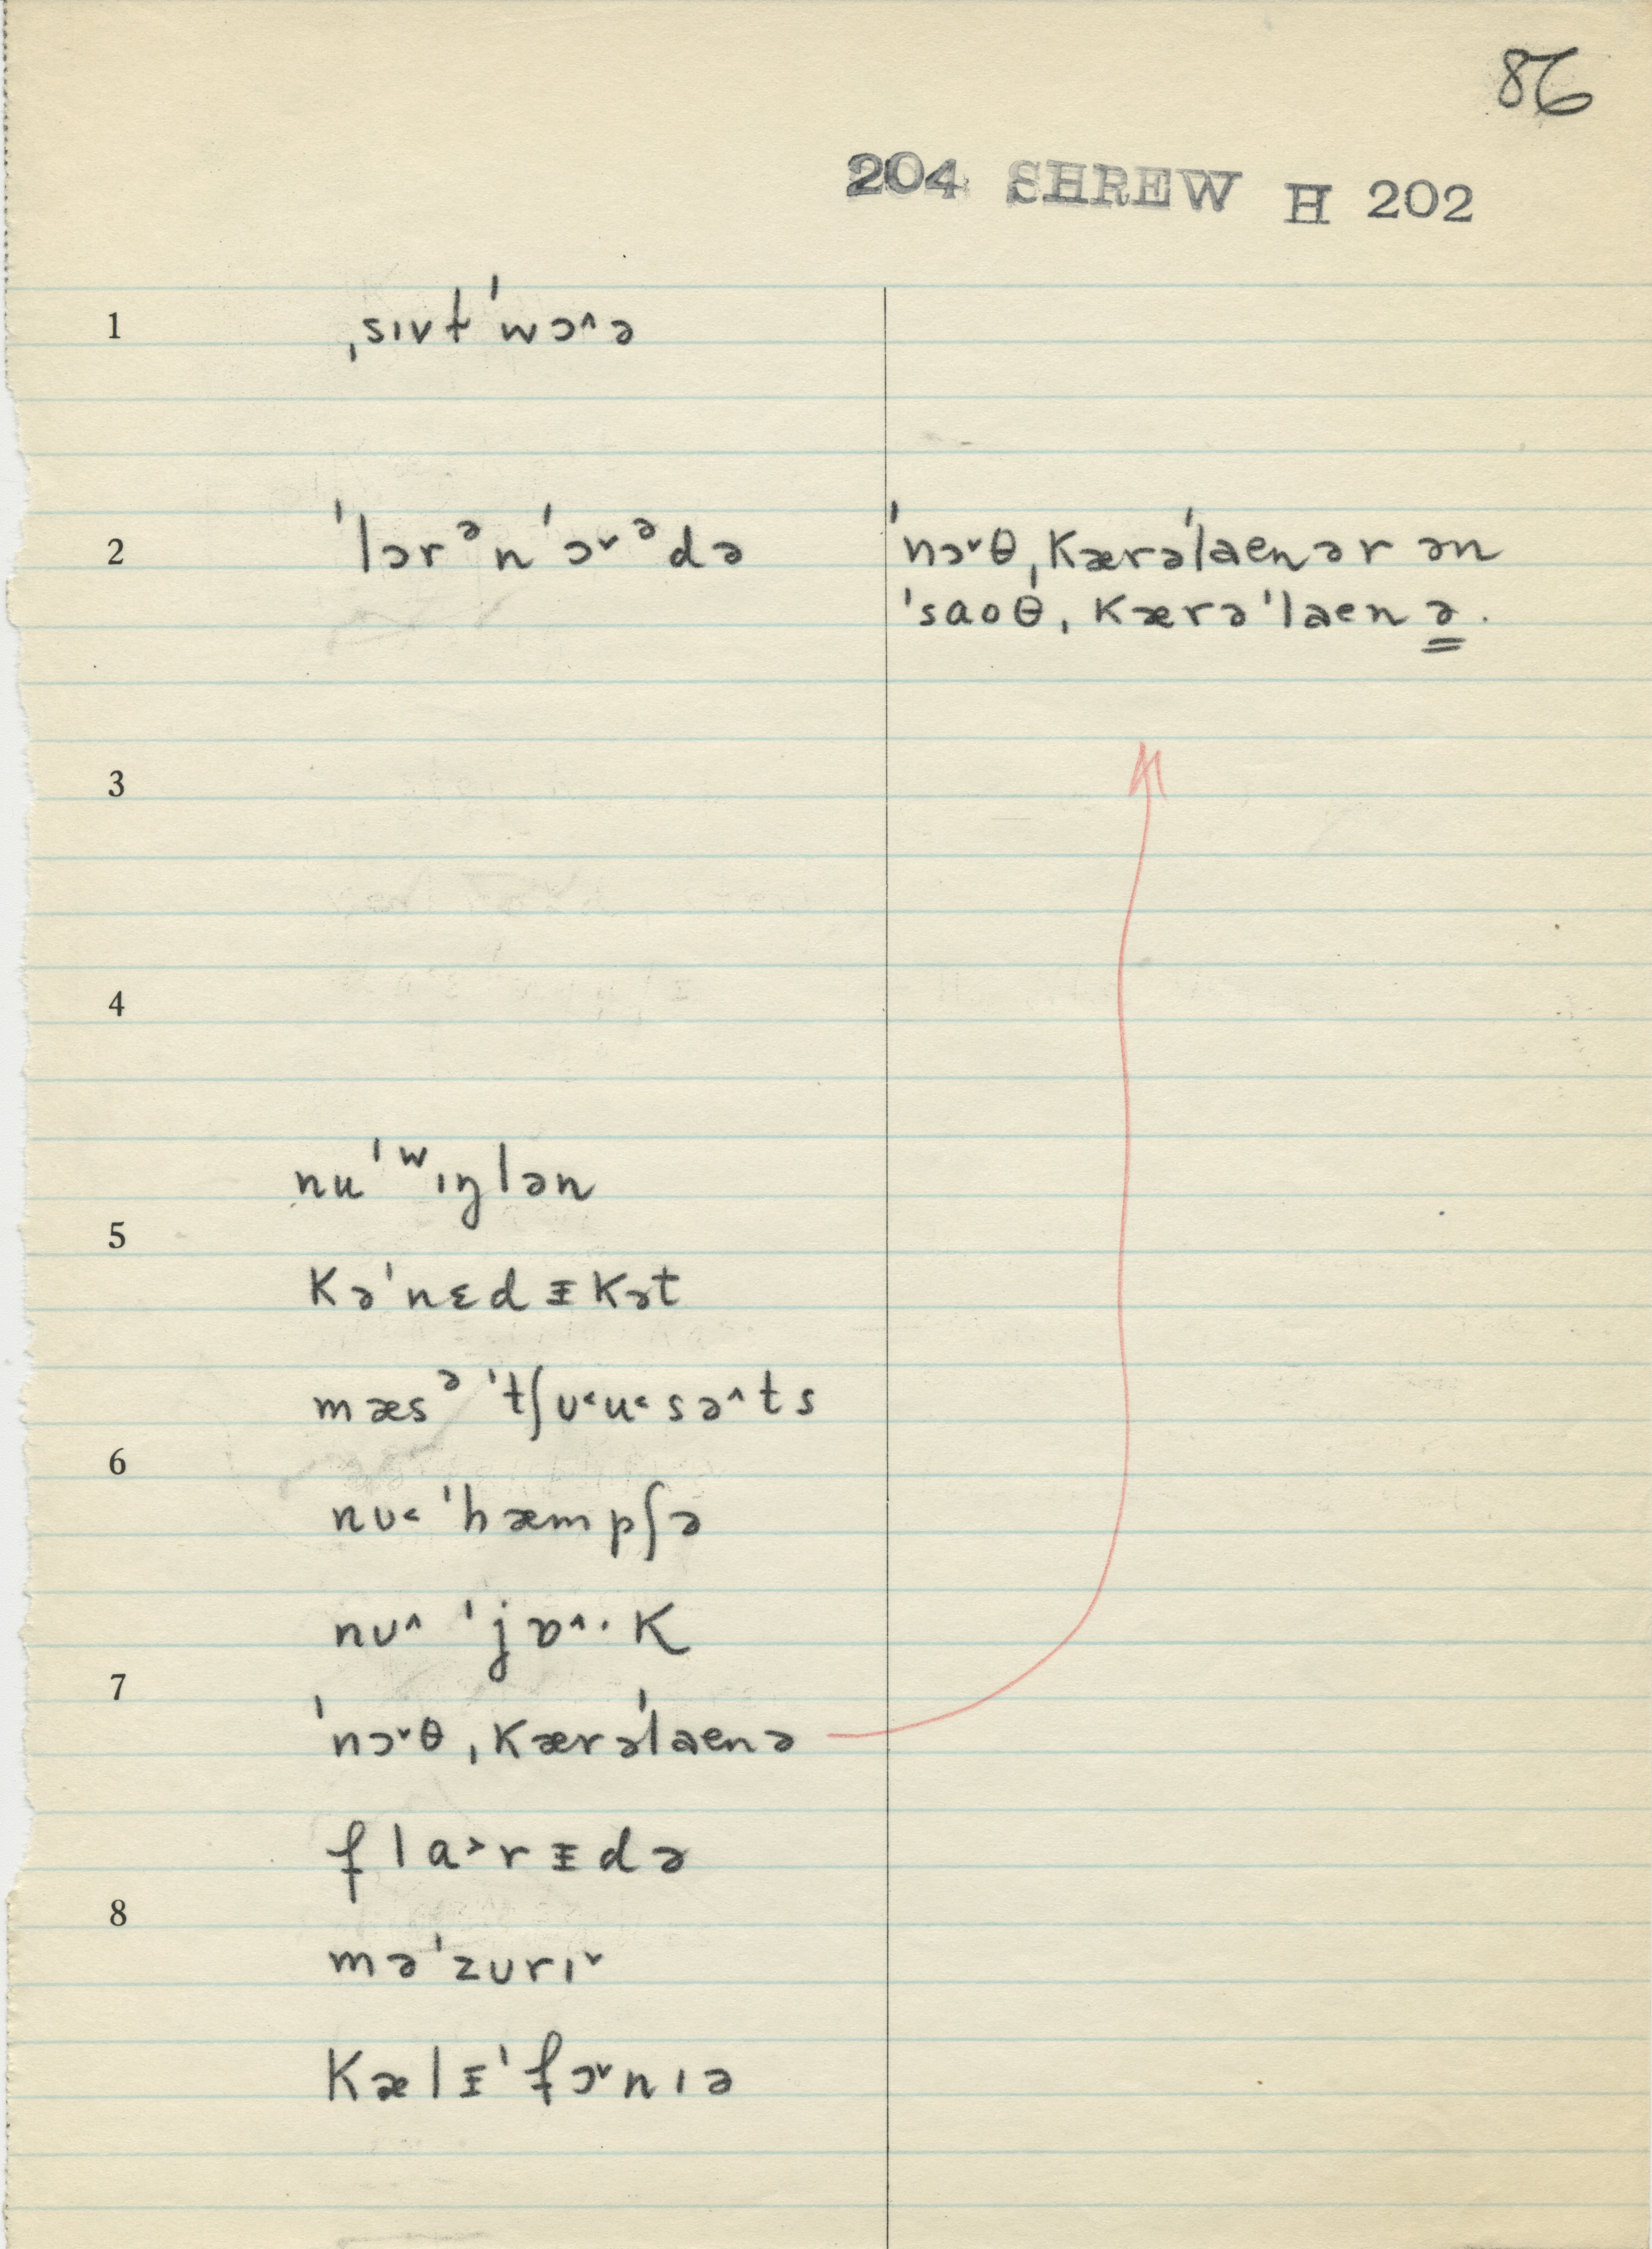 86
204 SHREW H 202
1 ˌsɪvt̵ˈwɔ˄ə
2 ˈlɔrᵊnˈɔ˅ᵊdə ˈnɔ˅θˌKærəˈlaenər ən
ˈsaoθˌKærəˈlaenə.
3
4
nuˈʷɪŋlən
5
Kəˈnɛdᵻkət
mæsᵊˈtʃʊ˂u˂sə˄ts
6
nʊ˂ˈhæmpʃə
nʊ˄ˈjɒ˄·K
7
ˈnɔ˅θˌKærəˈlaenə
flɑ˃rᵻdə
8
məˈzʊrɪ˅
Kælᵻˈfɔ˅nɪə